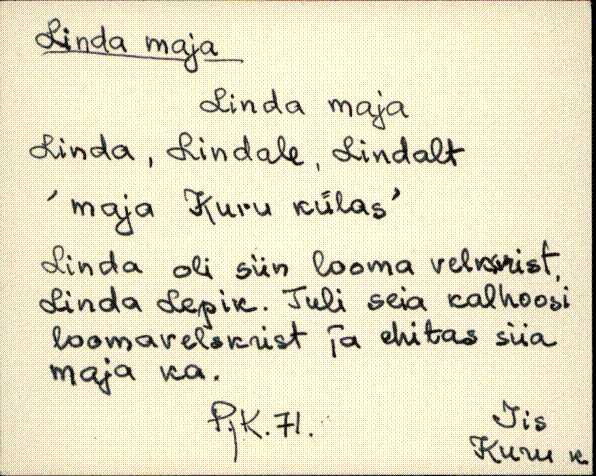 Linda maja
Linda maja
Linda, Lindale, Lindalt
'maja Kuru külas'
Linda oli siin looma velskrist,
Linda Lepik. Tuli seia kalhoosi
loomavelskrist ja ehitas siia
maja ka.
PjK. 71.
Iis
Kuru k.